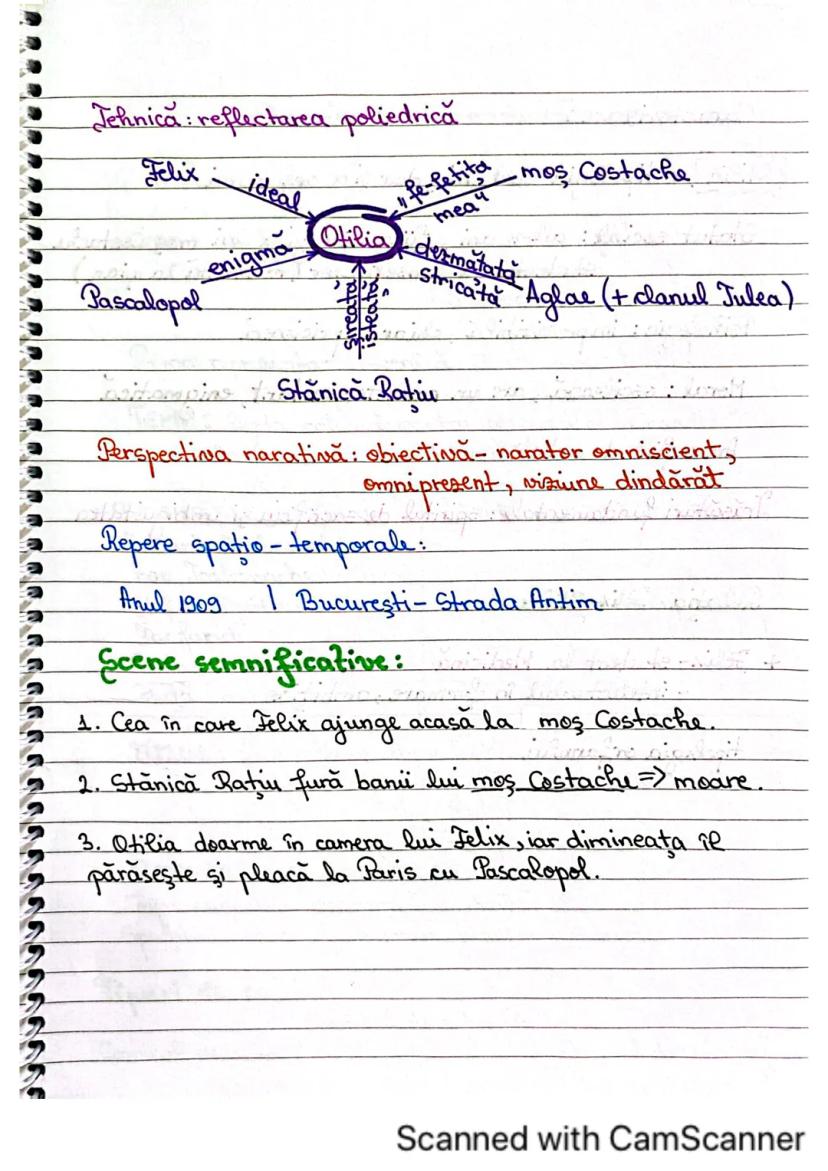 Tehnică: reflectarea poliedrică
Felix
ideal
"fe-fetița
mea"
moș Costache
Otilia
enigmă
Pascalopol
dezmățată
stricată
Aglae (+ clanul Tulea)
șireată,
isteată
Stănică Rațiu
Perspectiva narativă: obiectivă - narator omniscient,
omniprezent, viziune dindărăt
Repere spațio - temporale:
Anul 1909 | București - Strada Antim
Scene semnificative:
1. Cea în care Felix ajunge acasă la moș Costache.
2. Stănică Rațiu fură banii lui moș Costache => moare.
3. Otilia doarme în camera lui Felix, iar dimineața îl
părăsește și pleacă la Paris cu Pascalopol.
Scanned with CamScanner